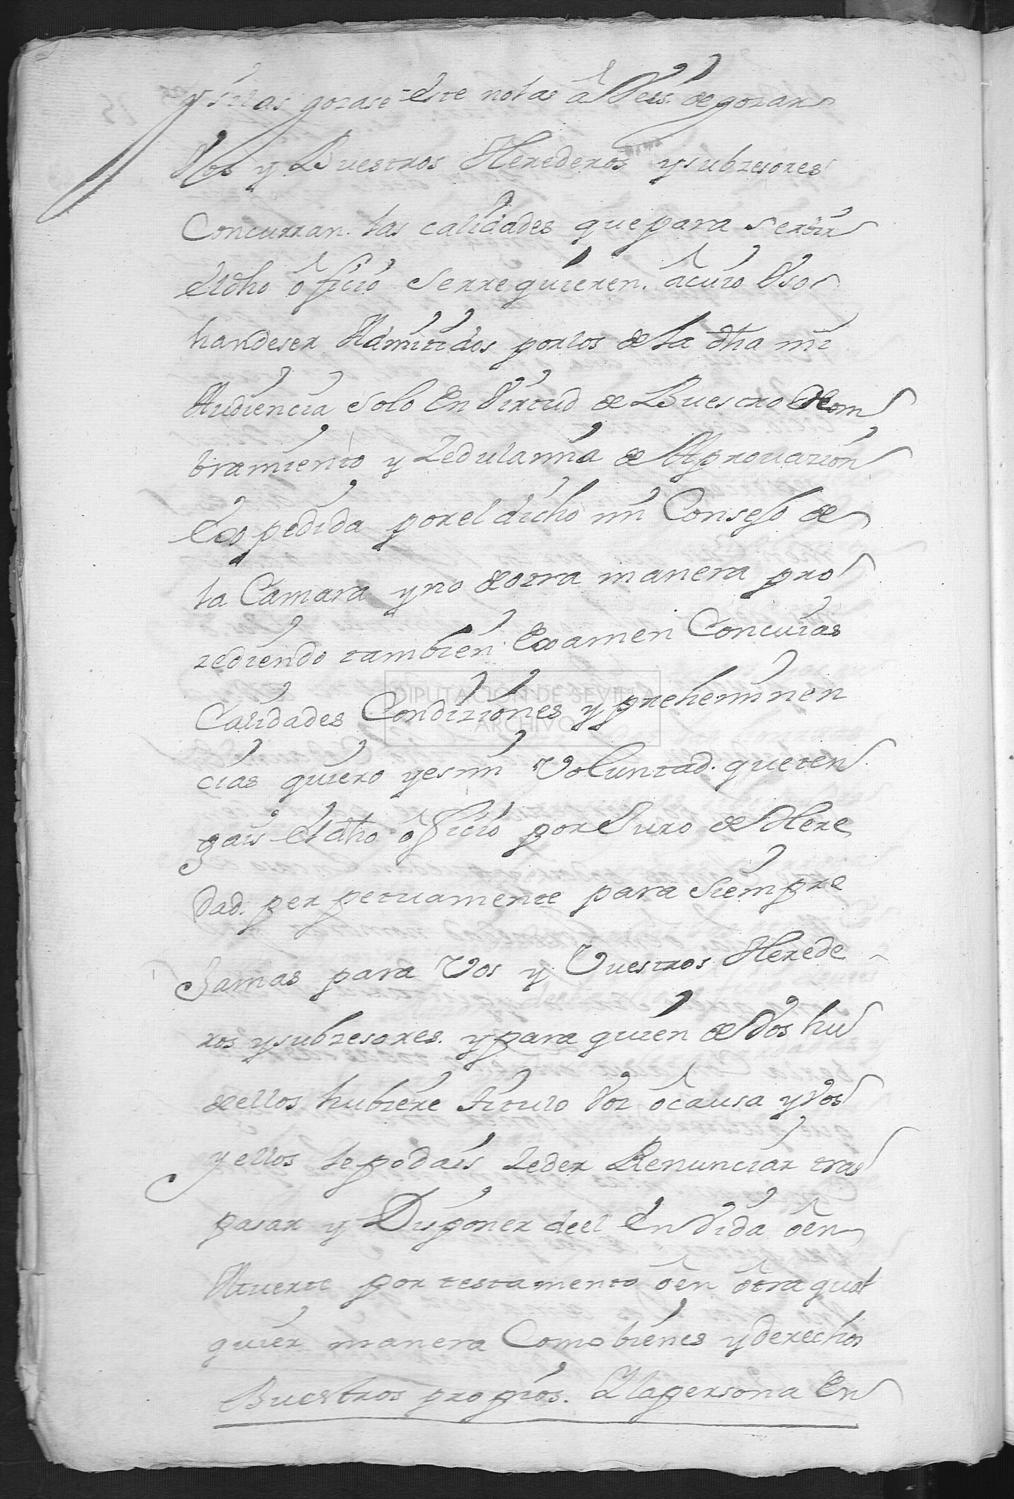 y si las gozase este no las aveis de gozar
Vos y Buestros Herederos y subzesores
Concurran las calidades que para servir
el dho ôficio se rrequieren. â cuio Vso
han de ser Admitidos por los de la dha mi
Audiencia solo En Virtud de Buestro Nom
bramiento y Zedula mia de Aprouazion
Expedida por el dicho mi Consejo de
la Camara y no de otra manera pro
zediendo tambien Examen Con cuias
Calidades Condiziones y preheminen
cias quiero y es mi Voluntad. que ten
gais el dho ôficio por Juro de Here
dad. perpetuamente para siempre
Jamas para Vos y Vuestros Herede
ros y subzesores. y para quien de Vos hu
dellos hubiere titulo Voz ô causa y Vos
y ellos le podais Zeder Renunciar tras
pasar y Disponer de el En Vida ô en
Muerte por testamento ô en ôtra qual
quier manera Como bienes y derechos
Buestros propios. El la persona En
DIPUTACION DE SEVILLA
ARCHIVO